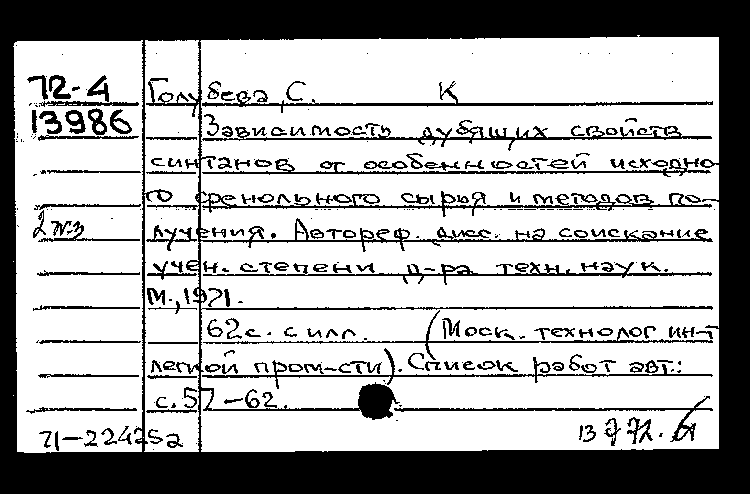 72-4 Голубева, С. К
13986 Зависимость дубящих свойств
синтанов от особенностей исходно-
го фенольного сырья и методов по-
лучения. Автореф. дисс. на соискание
учен. степени д-ра техн. наук.
М., 1971.
62 с. с илл. (Моск. технолог ин-т
легкой пром-сти). Список работ авт.:
с. 57-62.
71-22425а